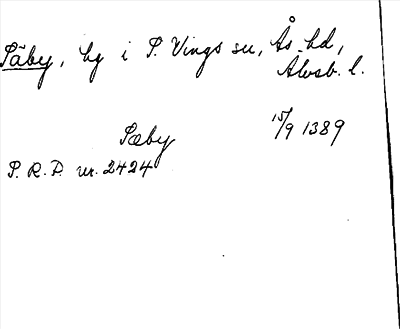 Säby, hg i S. Vings sn, Ås hd,
Älvsb. l.
Sæby 15/9 1389
S.R.P. nr. 2424